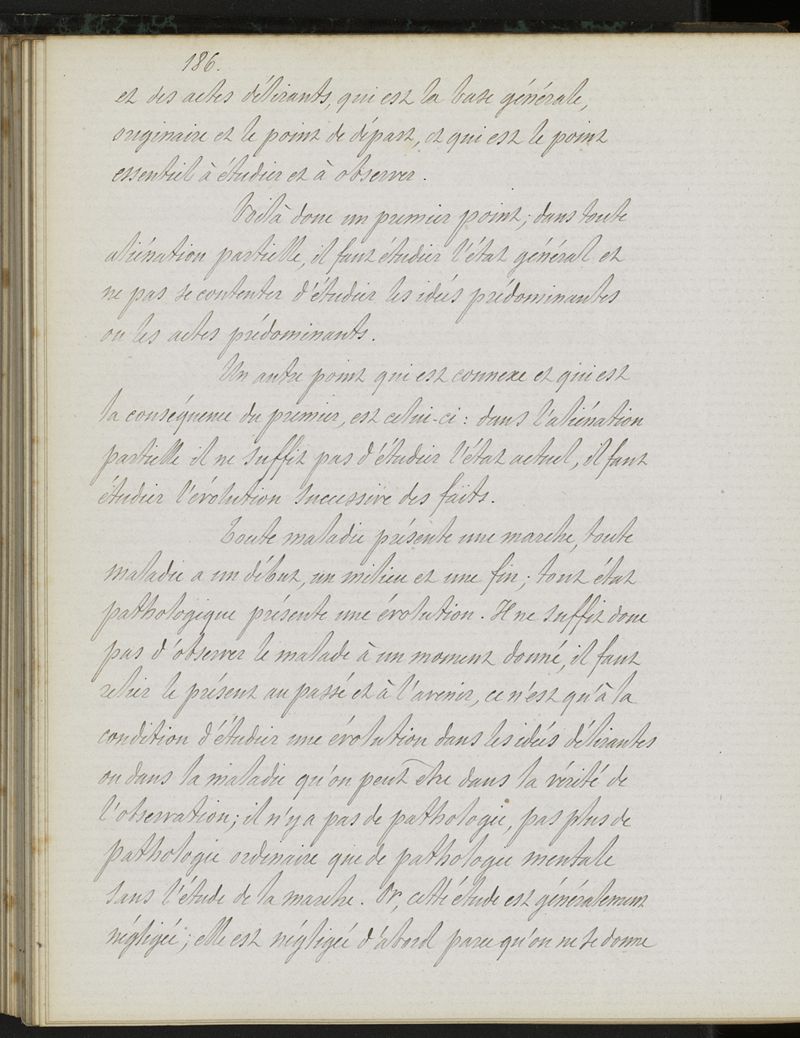 186.
et des actes délirants, qui est la base générale,
originaire et le point de départ, et qui est le point
essentiel à étudier et à observer.
Voilà donc un premier point; dans toute
aliénation partielle, il faut étudier l'état général et
ne pas se contenter d'étudier les idées prédominantes
ou les actes prédominants.
Un autre point qui est connexe et qui est
la conséquence du premier, est celui-ci: dans l'aliénation
partielle il ne suffit pas d'étudier l'état actuel, il faut
étudier l'évolution successive des faits.
Toute maladie présente une marche, toute
maladie a un début, un milieu et une fin; tout état
pathologique présente une évolution. Il ne suffit donc
pas d'observer le malade à un moment donné, il faut
relier le présent au passé et à l'avenir, ce n'est qu'à la
condition d'étudier une évolution dans les idées délirantes
ou dans la maladie qu'on peut être dans la vérité de
l'observation; il n'y a pas de pathologie, pas plus de
pathologie ordinaire que de pathologie mentale
sans l'étude de la marche. Or, cette étude est généralement
négligée; elle est négligée d'abord parce qu'on ne se donne